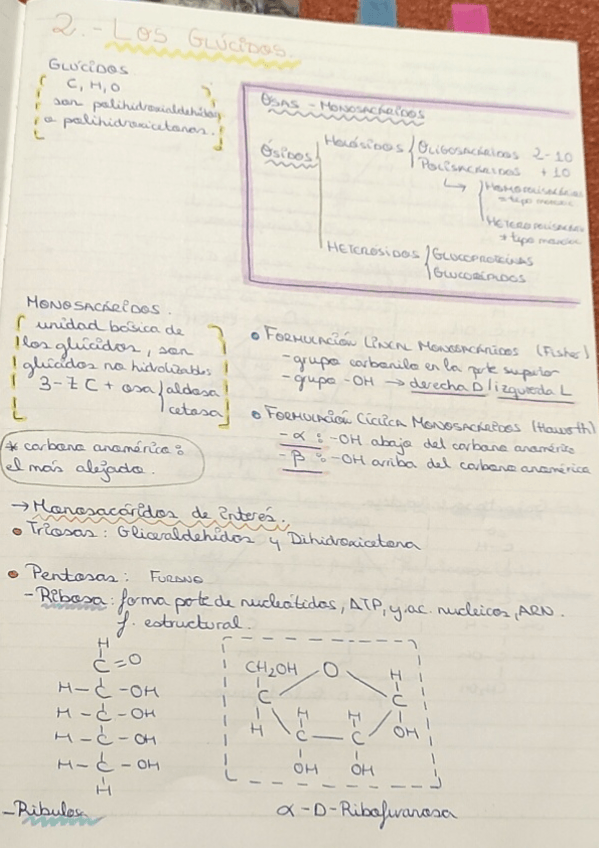 2.- LOS GLÚCIDOS.
GLÚCIDOS
C, H, O
son polihidroxialdehídos
o polihidroxicetonas.
OSAS - MONOSACÁRIDOS
ÓSIDOS
HOLÓSIDOS
OLIGOSACÁRIDOS 2-10
POLISACÁRIDOS +10
HETERÓSIDOS
GLUCOPROTEÍNAS
MONOSACÁRIDOS.
unidad básica de
los glúcidos, son
glúcidos no hidrolizables
3-7 C + osa
aldosa
cetosa
* carbono anomérico:
el más alejado.
• FORMULACIÓN LINEAL MONOSACÁRIDOS (Fisher)
- grupo carbonilo en la parte superior
- grupo -OH → derecha D / izquierda L
• FORMULACIÓN CÍCLICA MONOSACÁRIDOS (Haworth)
- α : -OH abajo del carbono anomérico
- β : -OH arriba del carbono anomérico
→ Monosacáridos de interés:
• Triosas: Gliceraldehidos y Dihidroxicetona
• Pentosas: FURANO
- Ribosa: forma parte de nucleótidos, ATP, y ac. nucleicos, ARN.
f. estructural.
H
C=O
H-C-OH
H-C-OH
H-C-OH
H-C-OH
H
CH₂OH O H
C C
H H H OH
C C
OH OH
α-D-Ribofuranosa
- Ribulosa